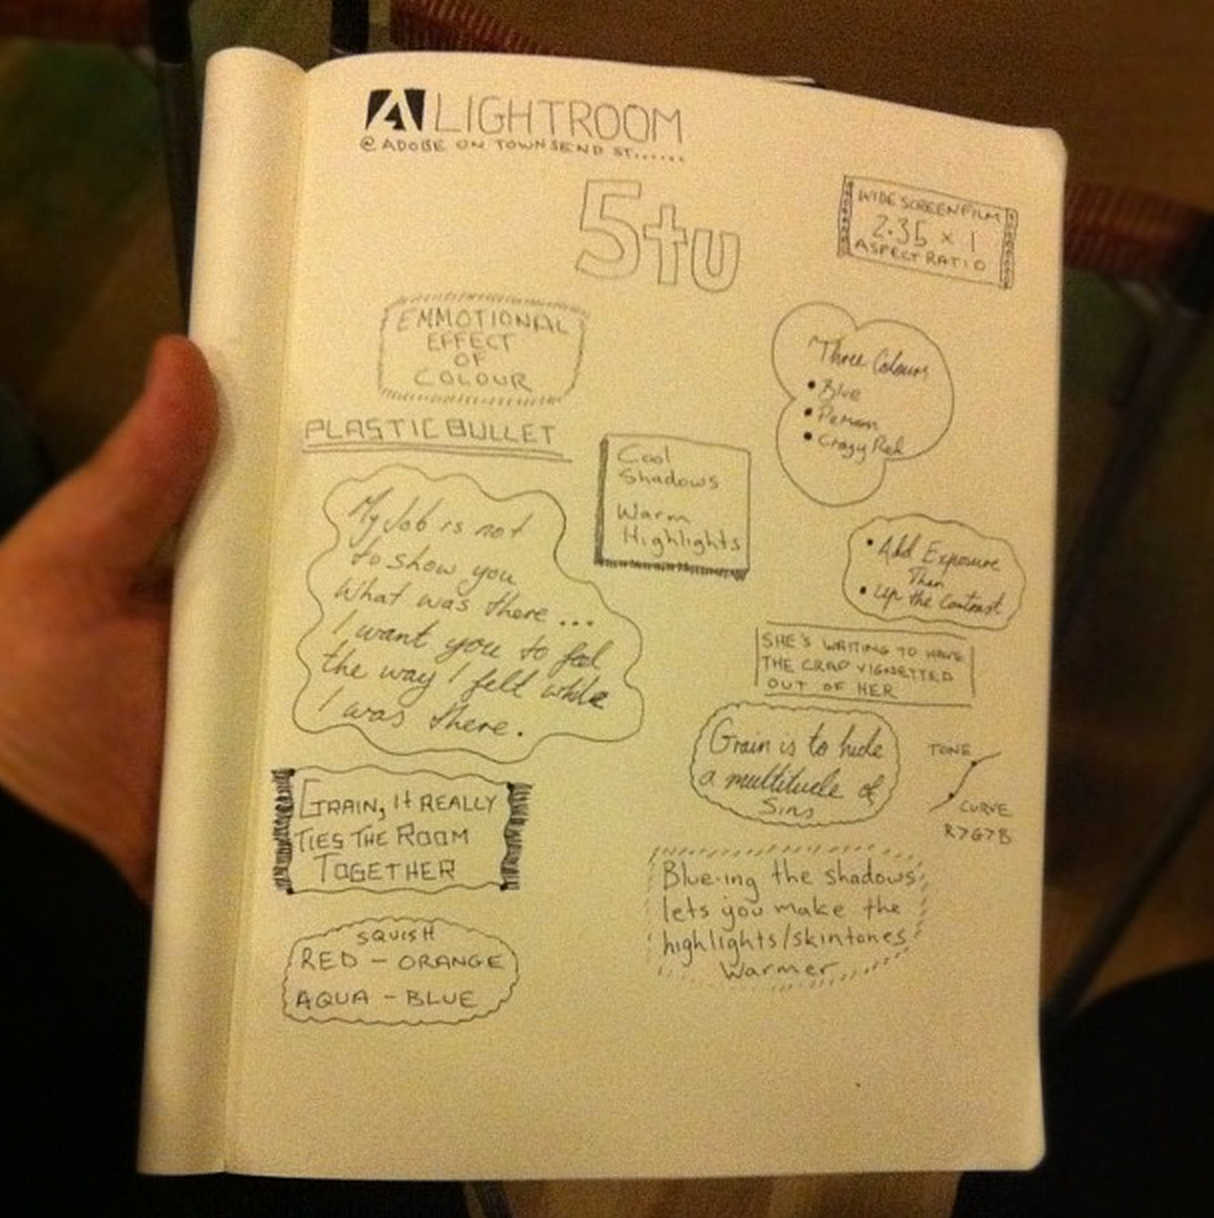 A LIGHTROOM
@ ADOBE ON TOWNSEND ST......
Stu
WIDESCREEN FILM
2.35 x 1
ASPECT RATIO
EMMOTIONAL
EFFECT
OF
COLOUR
Three Colours
• Blue
• Permian
• Crazy Red
PLASTIC BULLET
Cool
Shadows
Warm
Highlights
My Job is not
to show you
what was there...
I want you to feel
the way I felt while
I was there.
• Add Exposure
Then
• Up the Contrast
SHE'S WAITING TO HAVE
THE CRAP VIGNETTED
OUT OF HER
Grain is to hide
a multitude of
Sins
TONE
CURVE
R>G>B
GRAIN, It REALLY
TIES THE ROOM
TOGETHER
Blue-ing the shadows
lets you make the
highlights/skintones
Warmer
SQUISH
RED - ORANGE
AQUA - BLUE